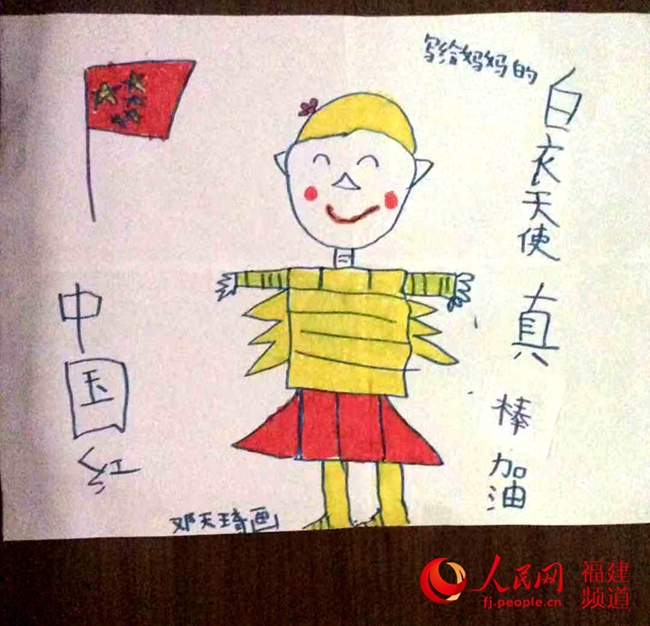 写给妈妈的
白衣天使真棒加油
中国红
邓天琦画
人民网
fj.people.cn
福建
频道